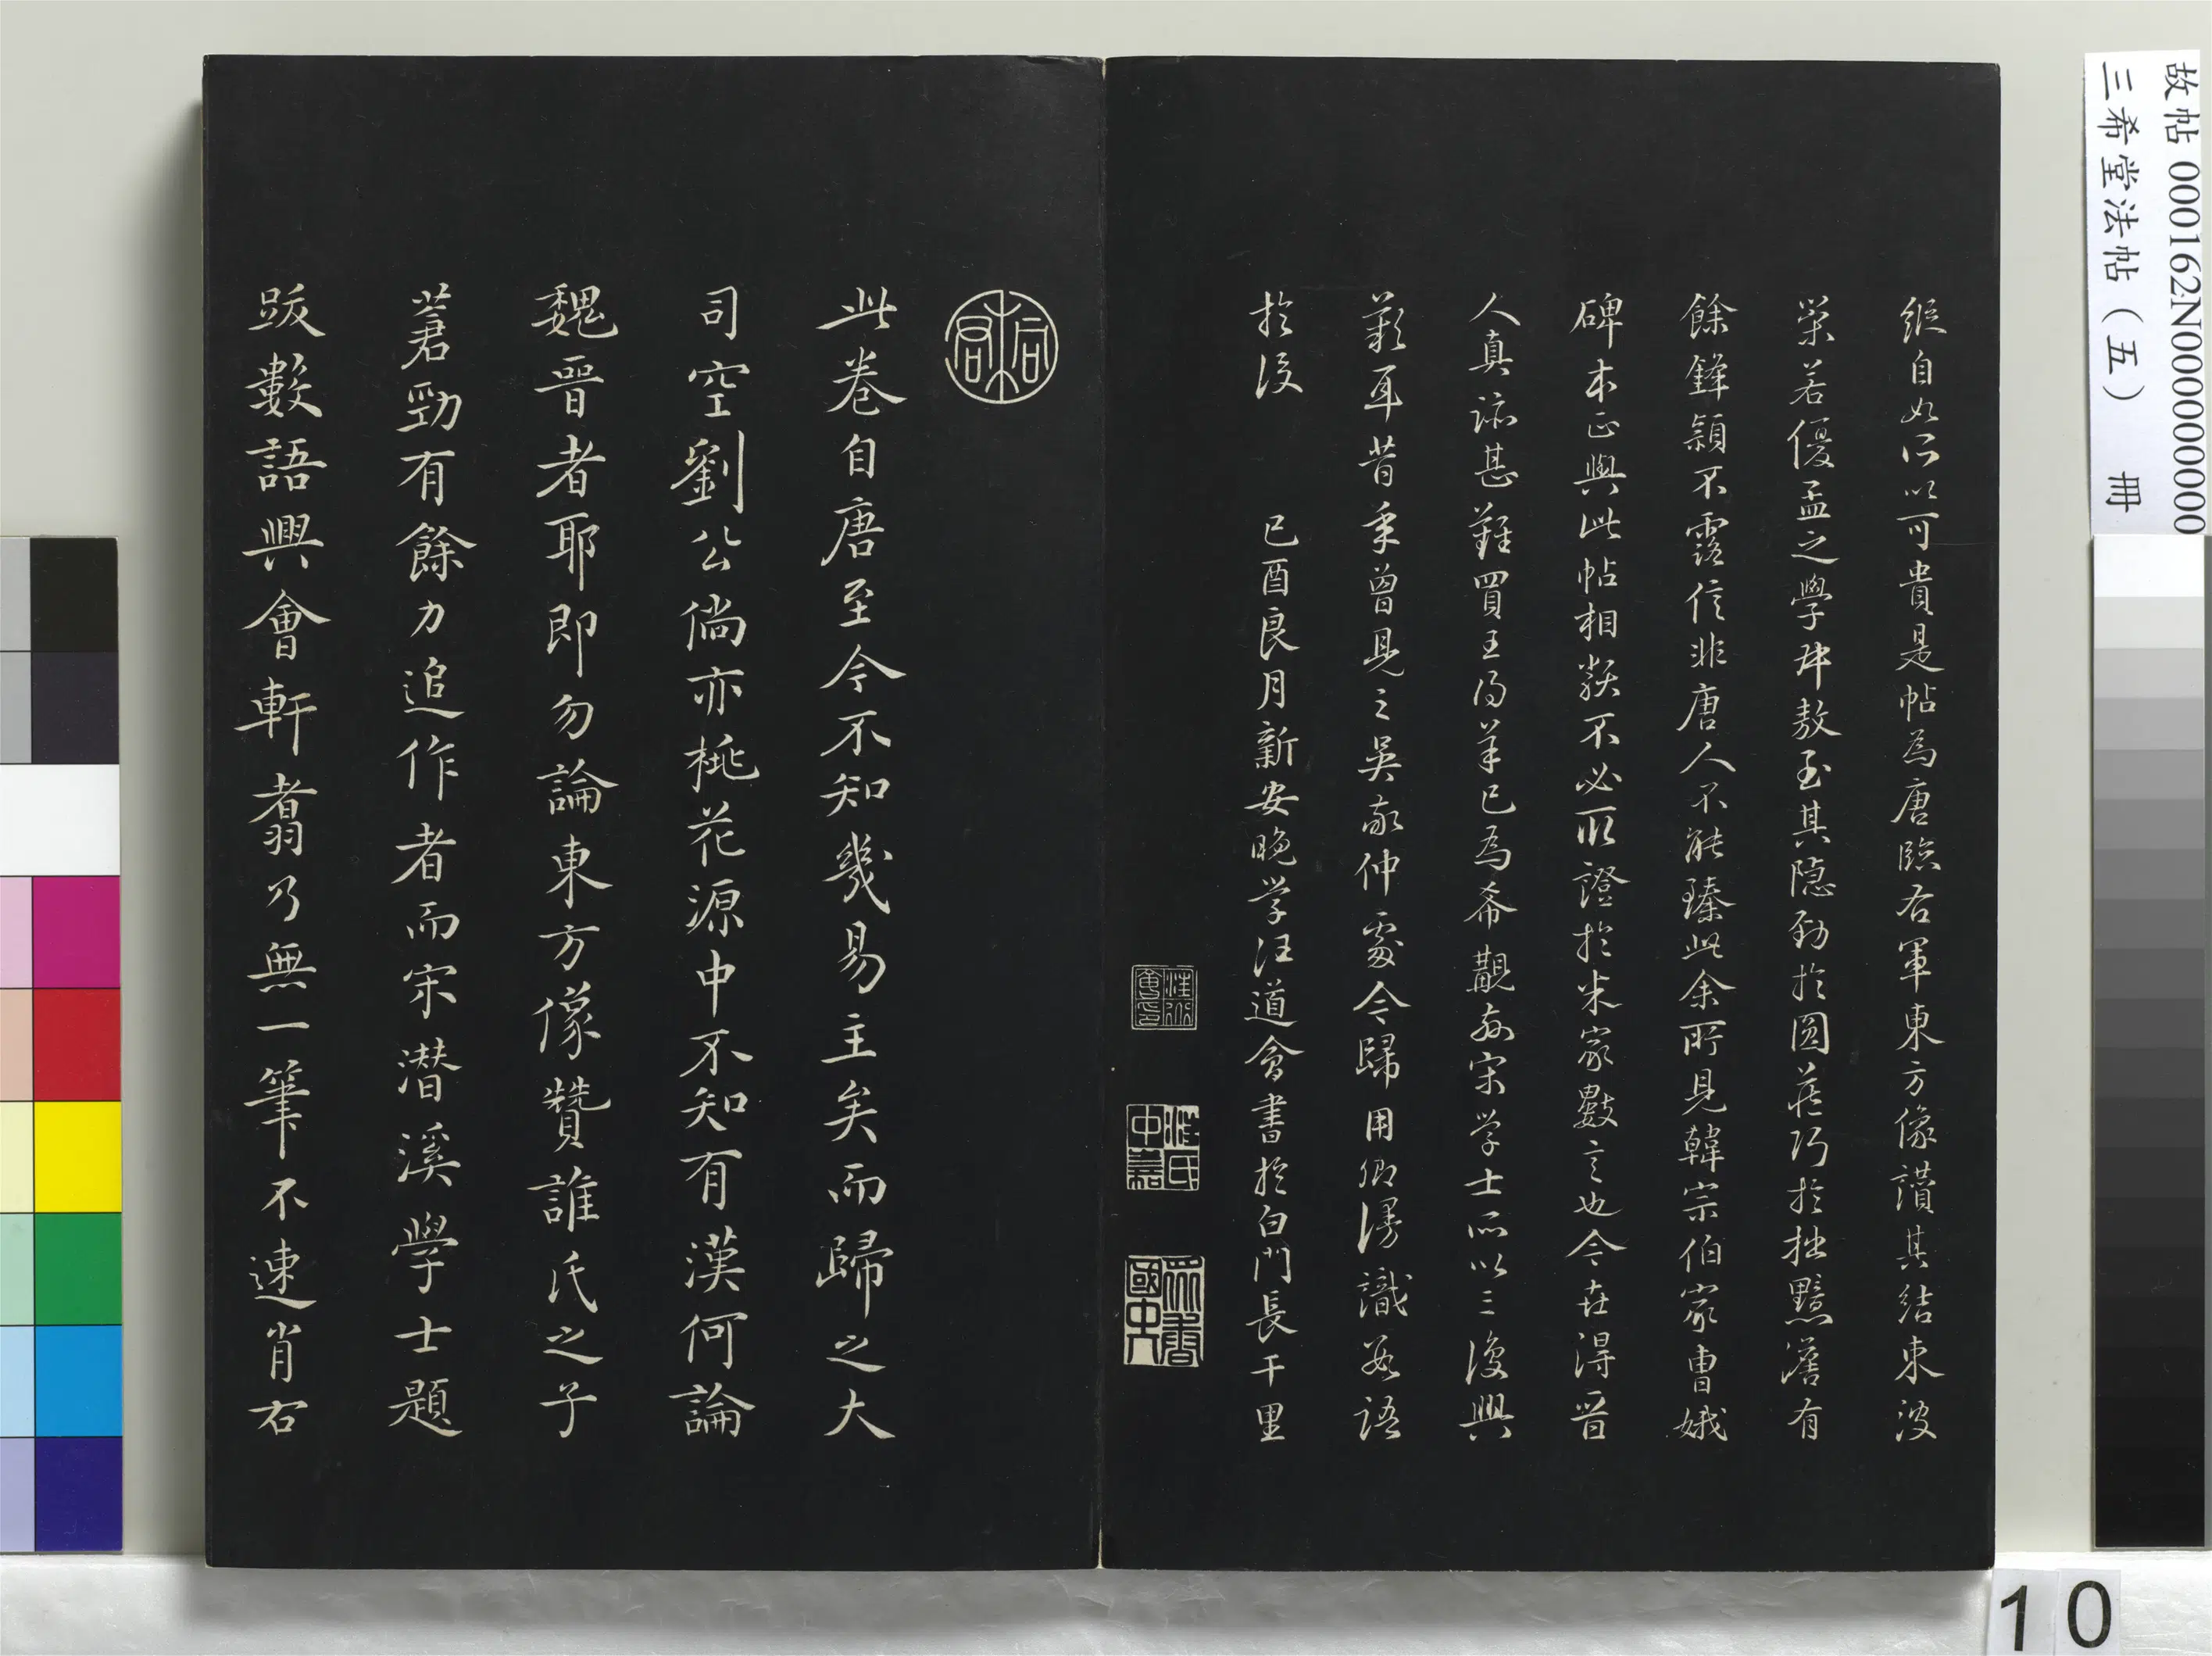 縱自如所以可貴是帖為唐臨右軍東方像讚其結束波
策若優孟之學叔敖至其隱勁於圓藏巧於拙黯澹有
餘鋒穎不露信非唐人不能臻此余所見韓宗伯家曹娥
碑本正與此帖相類不必取證於米家數言也今世得晉
人真跡甚難買王得羊已為希覯故宋學士所以三復興
歎耳昔年曾見之吳敬仲處今歸用卿漫識數語
於後
己酉良月新安晚學汪道會書於白門長干里
此卷自唐至今不知幾易主矣而歸之大
司空劉公倘亦桃花源中不知有漢何論
魏晉者耶即勿論東方像贊誰氏之子
蒼勁有餘力追作者而宋潛溪學士題
跋數語興會軒翥乃無一筆不速肖右
故帖000162N000000000
三希堂法帖（五） 冊
10